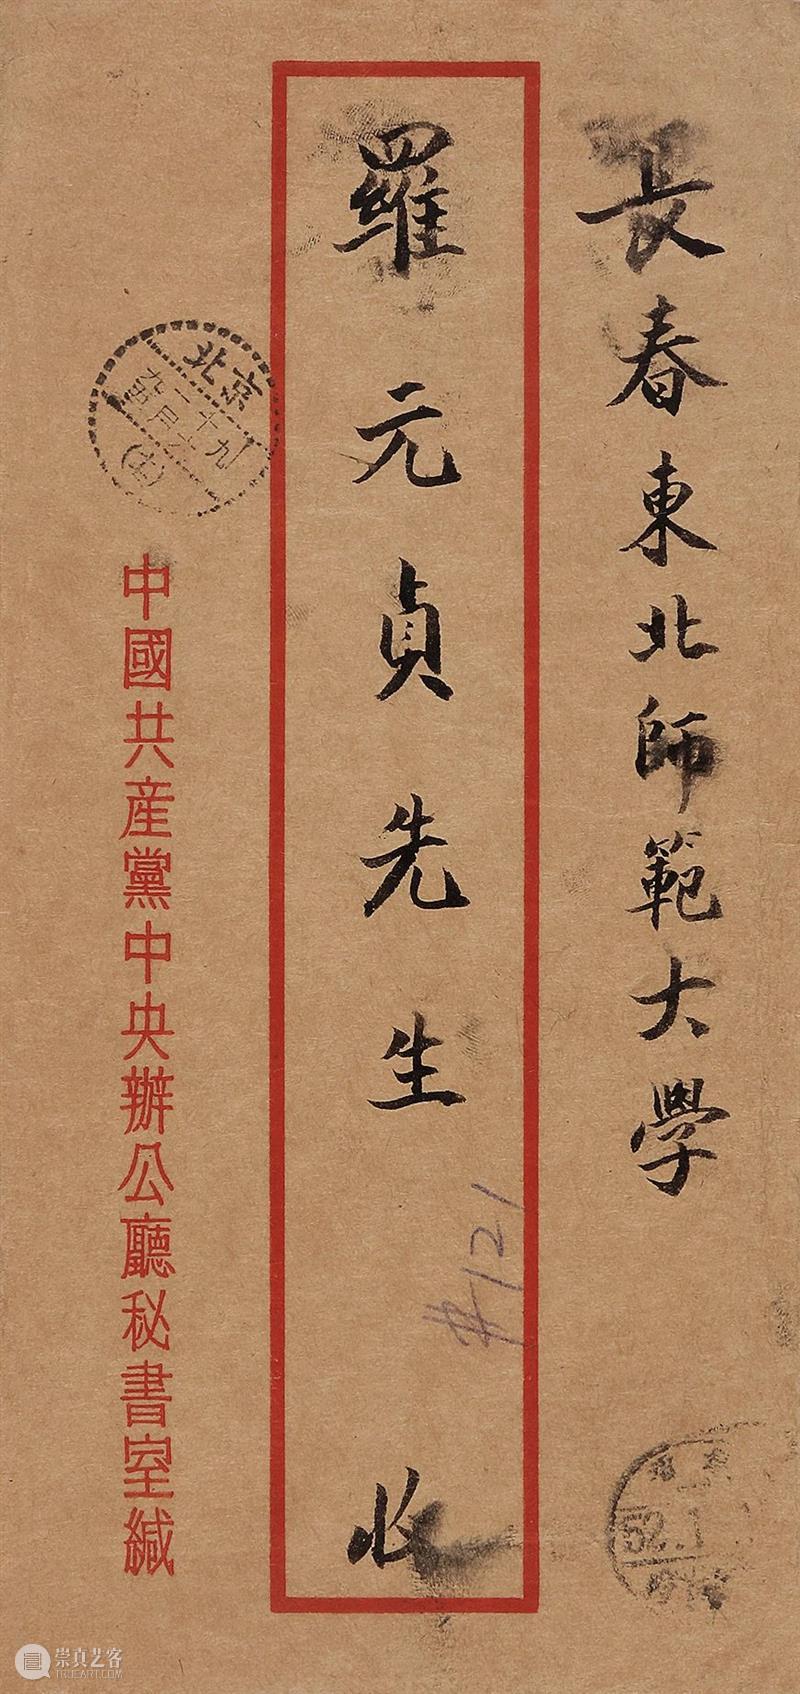 長春東北師範大學
羅元貞先生 收
#121
北京
中國共產黨中央辦公廳秘書室緘
52.1
崇真艺客
TRUEART.COM